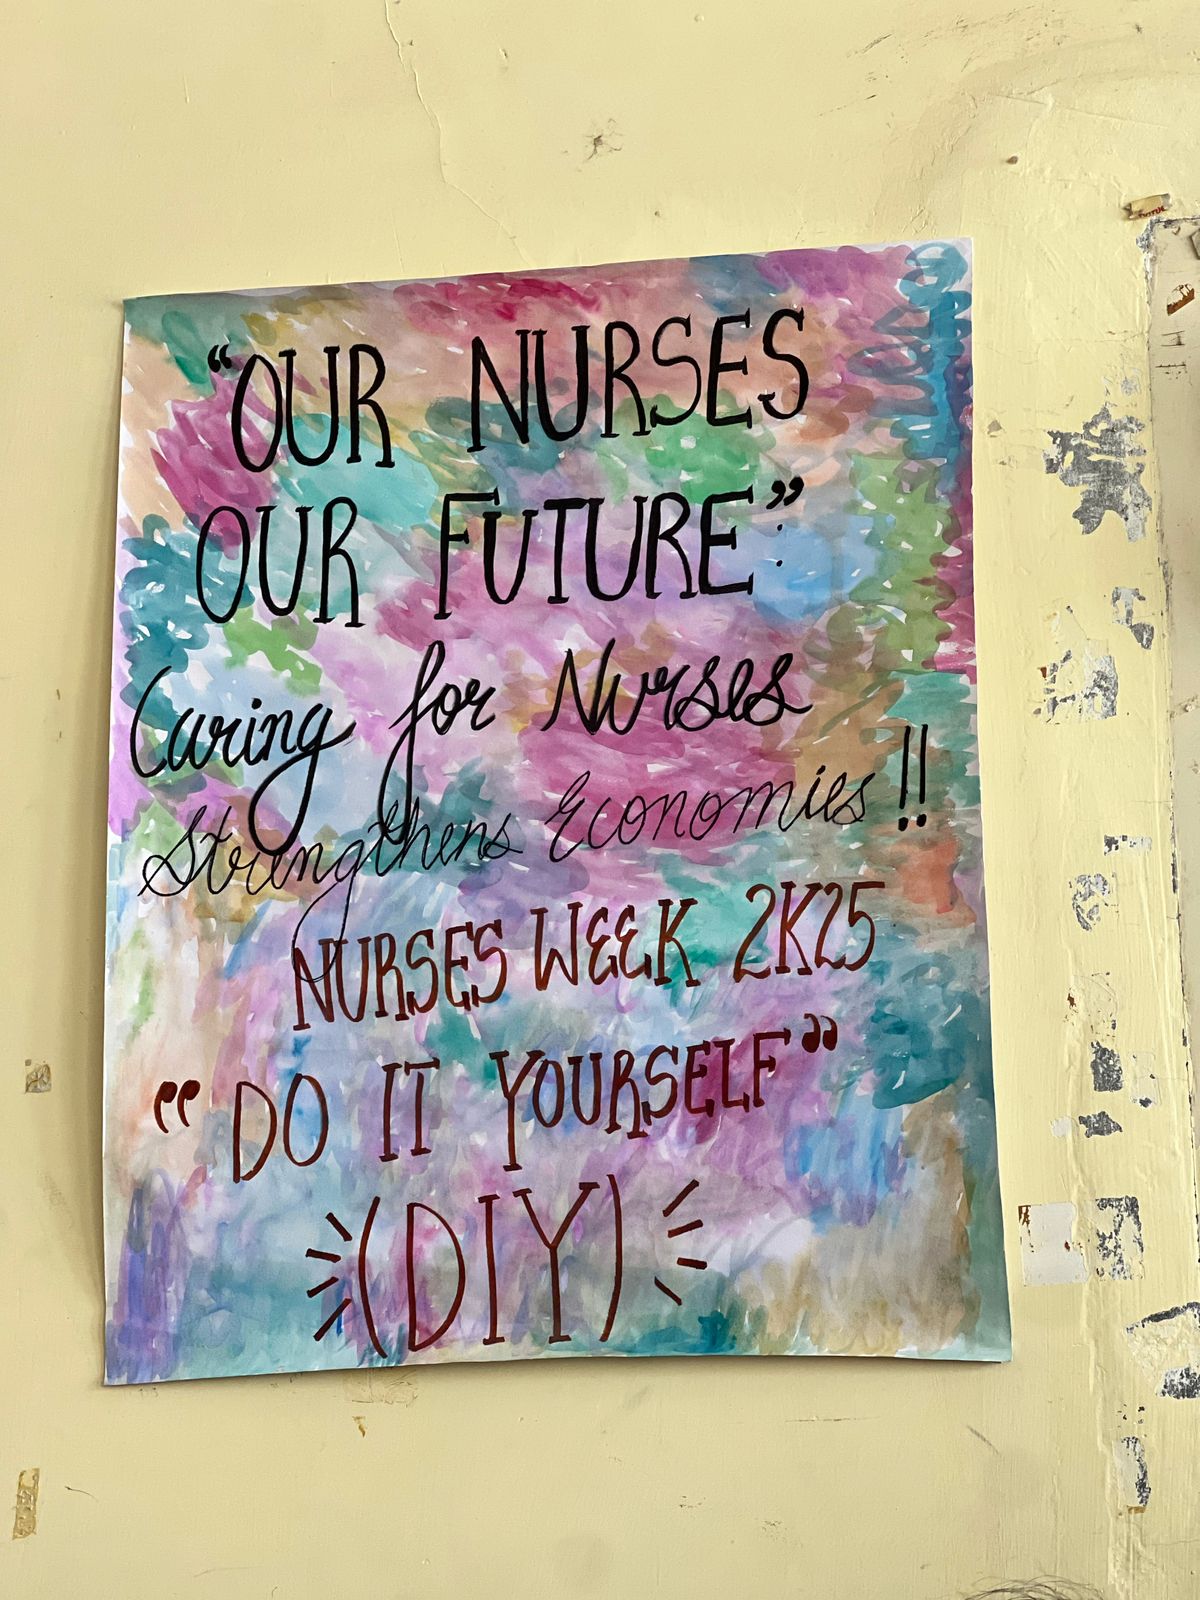 “OUR NURSES
OUR FUTURE”
Caring for Nurses
Strengthens Economies !!
NURSES WEEK 2K25
“DO IT YOURSELF”
(DIY)